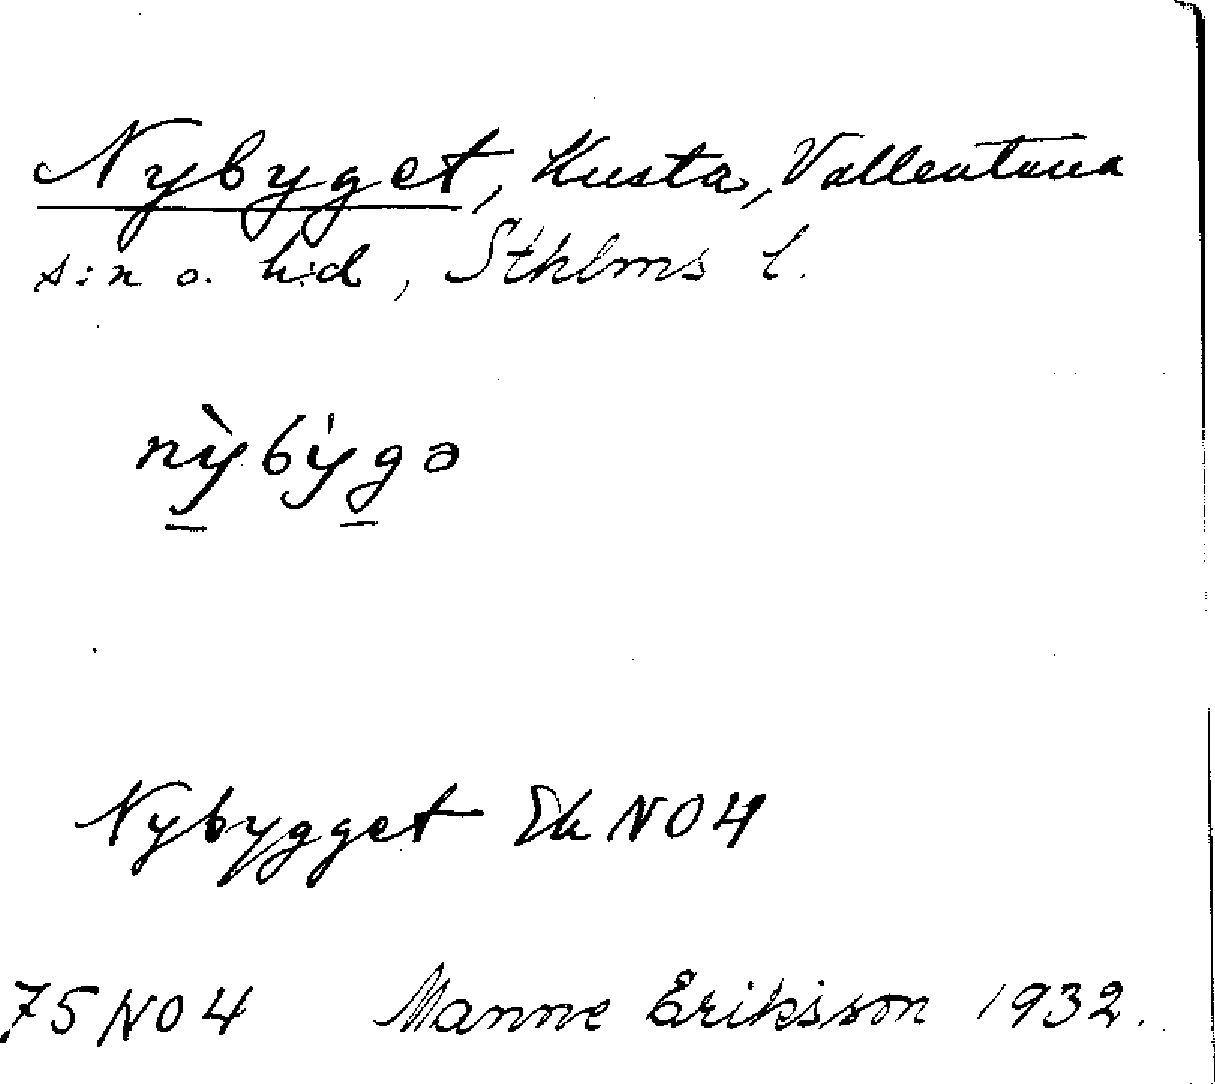 Nybyget, Kusta, Vallentuna
s:n o. h:d, Sthlms l.
nỳby̍gə
Nybygget Ek NO4
75 NO4 Manne Eriksson 1932.